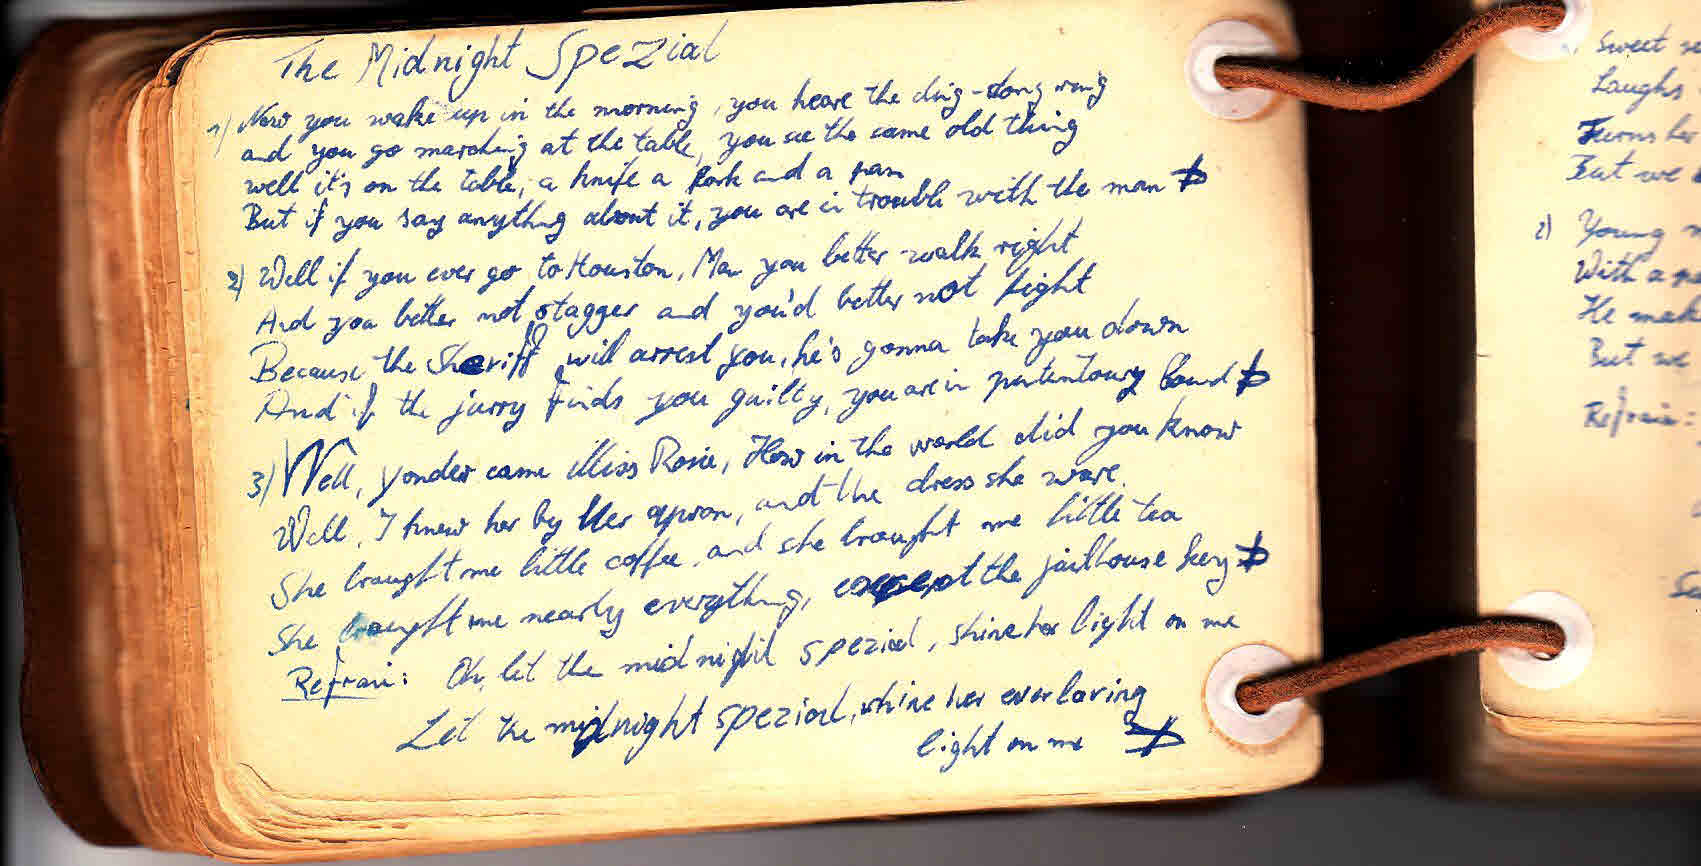 The Midnight Spezial
1) Now you wake up in the morning, you heare the ding-dong ring
and you go marching at the table, you see the same old thing
well it's on the table, a knife a fork and a pan
But if you say anything about it, you are in trouble with the man
2) Well if you ever go to Houston, Man you better walk right
And you better not stagger and you'd better not fight
Because the Sheriff will arrest you, he's gonna take you down
And if the jurry finds you guilty, you are in pentontoury bound
3) Well, yonder came Miss Rosie, How in the world did you know
Well, I knew her by her apron, and the dress she ware.
She braught me little coffee and she braught me little tea
She braught me nearly everything, except the jailhouse key
Refrain: Oh, let the midnight spezial, shine her light on me
Let the midnight spezial, shine her ever loving
light on me
Sweet
Laughs
Turns her
But we
2) Young
With a
He make
But we
Refrain: